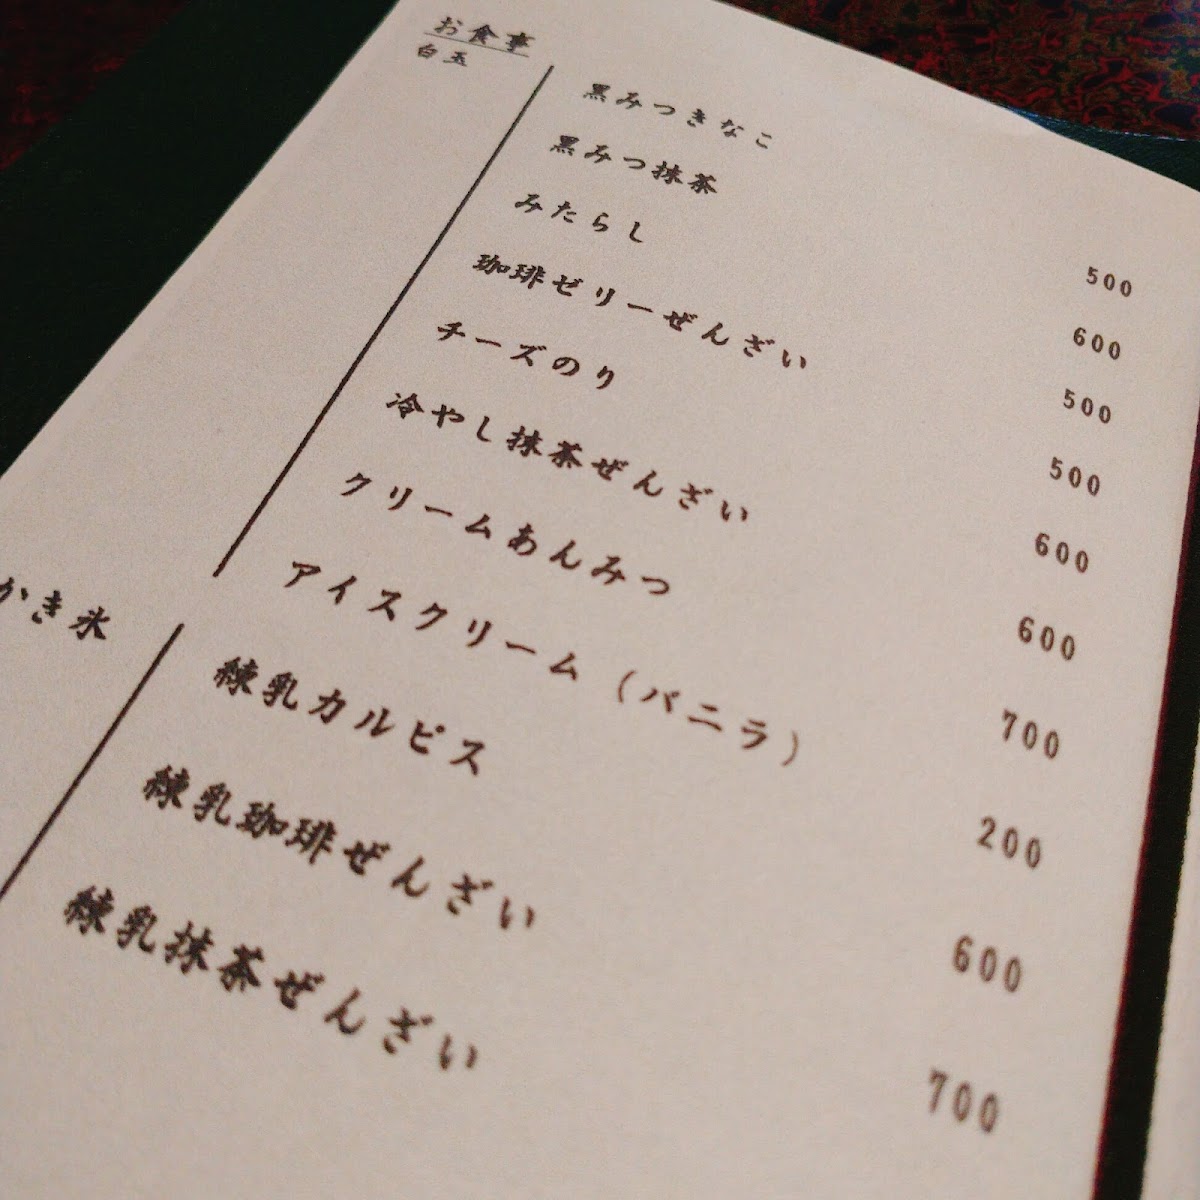 お食事
白玉
黒みつきなこ 500
黒みつ抹茶 600
みたらし 500
珈琲ゼリーぜんざい 500
チーズのり 600
冷やし抹茶ぜんざい 600
クリームあんみつ 700
アイスクリーム（バニラ） 200
かき氷
練乳カルピス 600
練乳珈琲ぜんざい 700
練乳抹茶ぜんざい